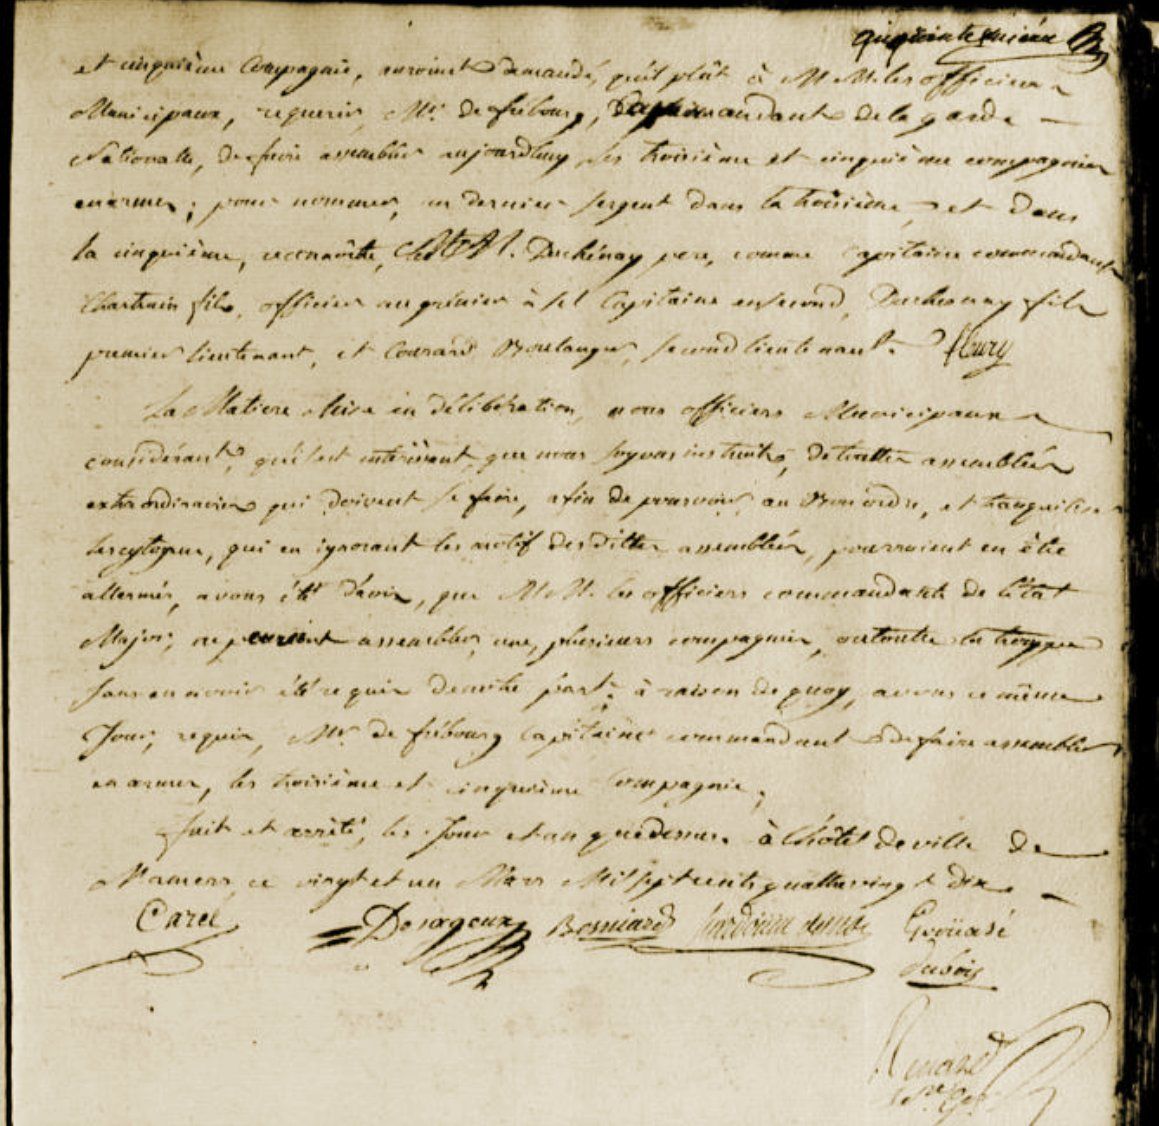 et cinquième Compagnie, auroient demandé, qu'il plût à MM. les officiers
Municipaux, requerir, Mr. de fribourg, Commandant de la garde
Nationalle, de faire assembler aujourdhuy, les troisième et cinquième compagnies
en armes, pour nommer, un dernier sergent dans la troisième, et dans
la cinquième, reconnoitre, Duchénay pere, comme Capitaine commandant
Chartrain fils, officier au grénier à sel Capitaine en second, Duchesnay fils
premier lieutenant, et Conrard Boulanger, second lieutenant. fleury
La Matiere Mise en délibération, nous officiers Municipaux
considérant, qu'il est intéressant, que nous soyons instruits, de touttes assemblées
extraordinaires qui doivent se faire, afin de pourvoir au Bon ordre, et tranquiliser
les cytoyens, qui en ignorant les motif des dittes assemblées, pourroient en être
allarmés, avons été d'avis, que MM. les officiers commandants de l'état
Major, ne peuvent assembler, une, plusieurs compagnies, ou toutte la trouppe
sans en avoir été requis de notre part; à raison de quoy, avons ce même
Jour, requis, Mr. de fribourg Capitaine commandant de faire assembler
en armes, les troisième et cinquième Compagnie,
fait et arrété, les Jour et an que dessus, à l'hôtel de ville de
Mamers, ce vingt et un Mars Mil sept cents quattrevingt dix.
Carel Bosniard Grouasé
dubois